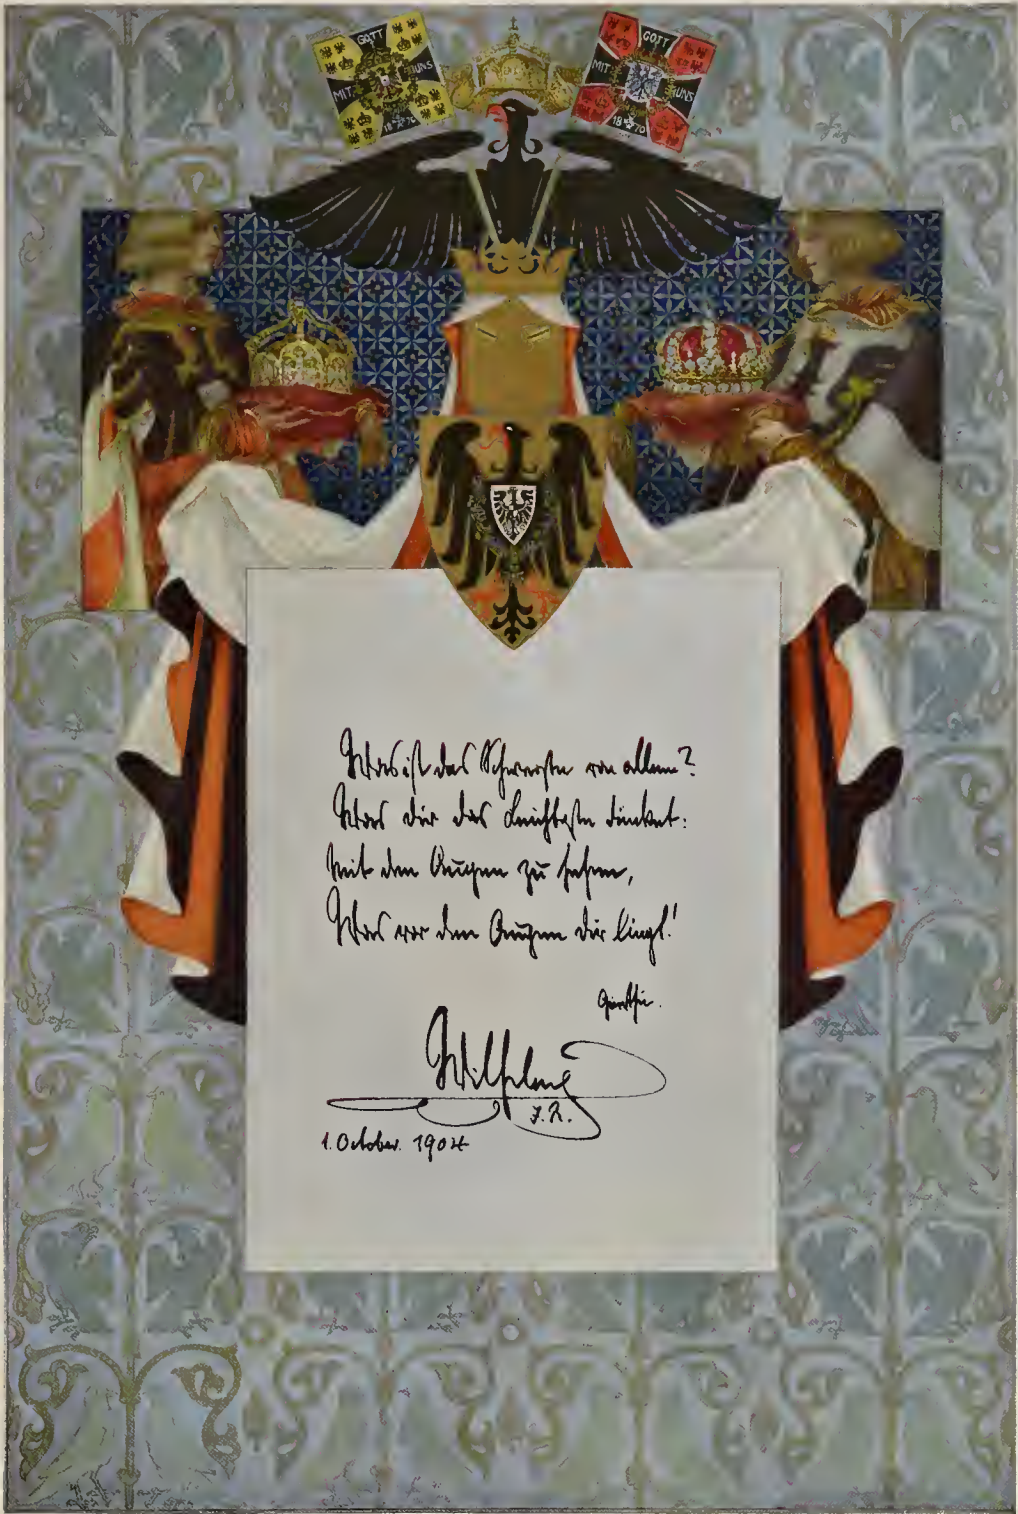 GOTT
MIT UNS
18 70
GOTT
MIT UNS
18 70
Was ist das Schwerste von allem?
Was dir das Leichteste dünket:
Mit den Augen zu sehen,
Was vor den Augen dir liegt!
Goethe.
Wilhelm
I.R.
1. October. 1904